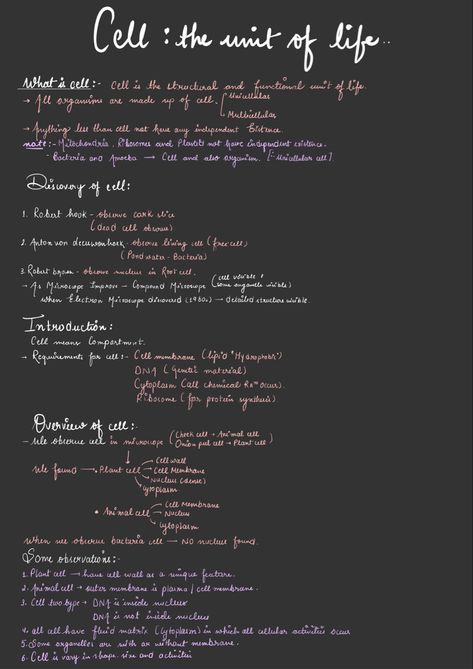 Cell : the unit of life..
What is cell:- Cell is the structural and functional unit of life.
→ All organisms are made up of cell. Unicellular
Multicellular
→ Anything less than cell not have any independent Existence.
note:- Mitochondria, Ribosomes and Plastids not have independent existence.
- Bacteria and Amoeba → Cell and also organism. [- Unicellular cell].
Discovery of cell:
1. Robert hook - observe cork slice
(dead cell observe)
2. Anton von leeuwenhoek - observe living cell (free cell)
(Pond water - Bacteria)
3. Robert brown - observe nucleus in Root cell.
→ As Microscope Improve → Compound Microscope (cell visible
(some organelle visible)
when Electron Microscope discovered (1930s) → detailed structure visible.
Introduction:
Cell means Compartment.
→ Requirements for cell:- Cell membrane (lipid "Hydrophobic")
DNA (Genetic material)
Cytoplasm (all chemical Rxn occur).
Ribosome (for protein synthesis)
Overview of cell:-
- We observe cell in microscope (Cheek cell → Animal cell
(Onion peel cell → Plant cell)
We found → • Plant cell Cell wall
Cell Membrane
Nucleus (dense)
Cytoplasm
• Animal cell Cell Membrane
Nucleus
Cytoplasm
When we observe bacteria cell → NO nucleus found.
Some observations:-
1. Plant cell → have cell wall as a unique feature.
2. Animal cell → outer membrane is plasma / cell membrane.
3. Cell two type → DNA is inside nucleus
DNA is not inside nucleus
4. all cell have fluid matrix (Cytoplasm) in which all cellular activities occur
5. Some organelles are with or without membrane.
6. Cell is vary in shape, size and activities